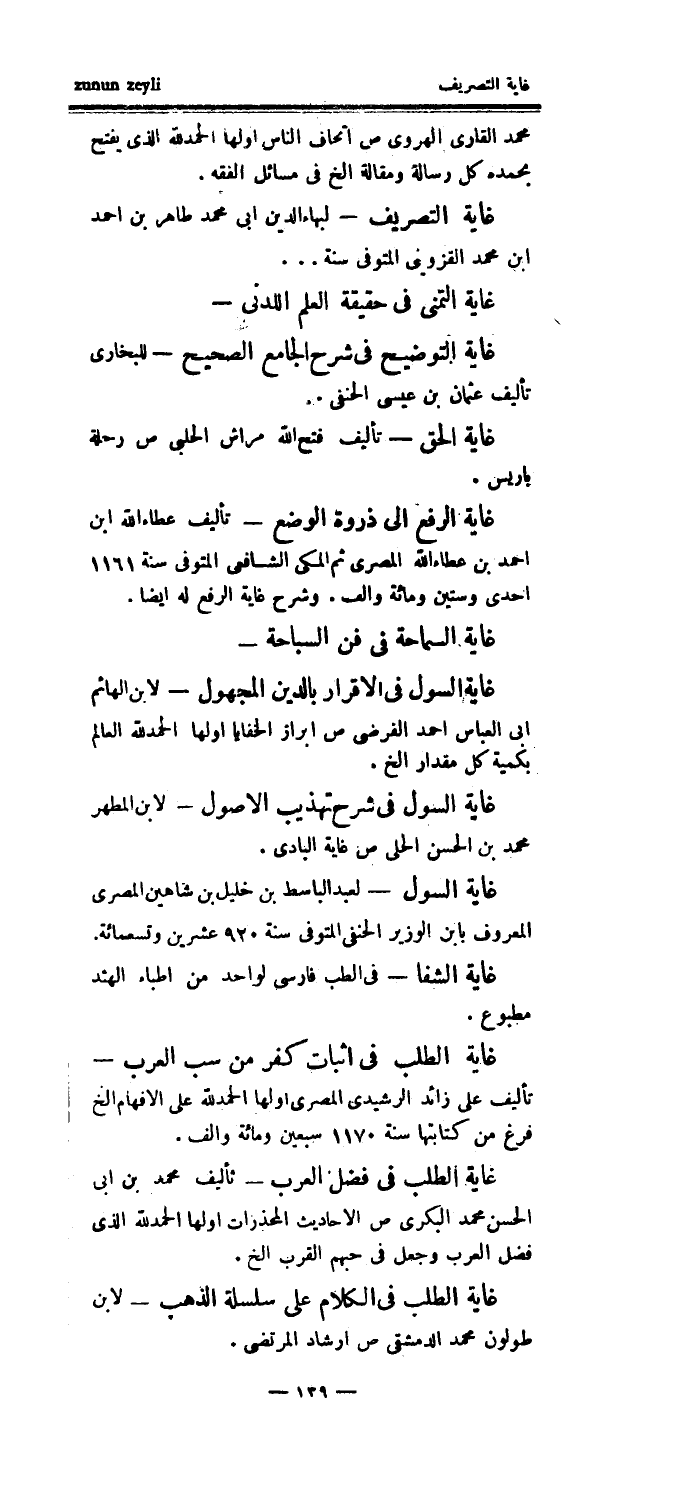 غاية التصريف zunun zeyli
محمد القارى الهروى ص اتحاف الناس اولها الحمدلله الذى يفتح
بحمده كل رسالة ومقالة الخ فى مسائل الفقه .
غاية التصريف — لبهاءالدين ابى محمد طاهر بن احمد
ابن محمد القزوينى المتوفى سنة . . .
غاية التمنى فى حقيقة العلم اللدنى —
غاية التوضيح فى شرح الجامع الصحيح — للبخارى
تأليف عثمان بن عيسى الحنفى . .
غاية الحق — تأليف فتح‌الله مراش الحلبى ص رحلة
باريس .
غاية الرفع الى ذروة الوضع — تأليف عطاءالله ابن
احمد بن عطاءالله المصرى ثم المكى الشافعى المتوفى سنة ١١٦١
احدى وستين ومائة والف . وشرح غاية الرفع له ايضا .
غاية السماحة فى فن السباحة —
غاية السول فى الاقرار بالدين المجهول — لابن الهائم
ابى العباس احمد الفرضى ص ابراز الخفايا اولها الحمدلله العالم
بكمية كل مقدار الخ .
غاية السول فى شرح تهذيب الاصول — لابن المطهر
محمد بن الحسن الحلى ص غاية البادى .
غاية السول — لعبدالباسط بن خليل بن شاهين المصرى
المعروف بابن الوزير الحنفى المتوفى سنة ٩٢٠ عشرين وتسعمائة.
غاية الشفا — فى الطب فارسى لواحد من اطباء الهند
مطبوع .
غاية الطلب فى اثبات كفر من سب العرب —
تأليف على زائد الرشيدى المصرى اولها الحمدلله على الافهام الخ
فرغ من كتابتها سنة ١١٧٠ سبعين ومائة والف .
غاية الطلب فى فضل العرب — تأليف محمد بن ابى
الحسن محمد البكرى ص الاحاديث المحذرات اولها الحمدلله الذى
فضل العرب وجعل فى حبهم القرب الخ .
غاية الطلب فى الكلام على سلسلة الذهب — لابن
طولون محمد الدمشقى ص ارشاد المرتضى .
— ١٣٩ —